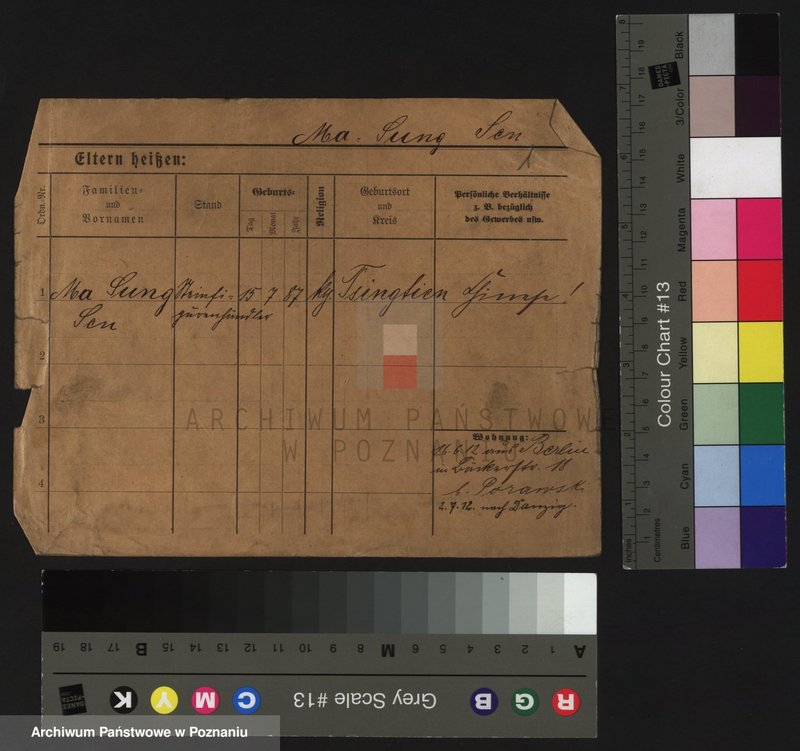 Ma Sung Sen
Eltern heißen:
Ordn.-Nr.
Familien-
und
Vornamen
Stand
Geburts-
Tag
Monat
Jahr
Religion
Geburtsort
und
Kreis
Persönliche Verhältnisse
z. B. bezüglich
des Gewerbes usw.
1 Ma Sung 15 7 87 Tsingtien !
Sen händler
2
3
4
Wohnung:
26 6 12 aus Berlin
in Bäckerstr. 18
b. Porawski
2.7.12. nach Danzig.
ARCHIWUM PAŃSTWOWE
W POZNANIU
Colour Chart #13
Black
3/Color
White
Magenta
Red
Yellow
Green
Cyan
Blue
Inches
Centimetres
8 7 6 5 4 3 2 1
19 18 17 16 15 14 13 12 11 10 9 8 7 6 5 4 3 2 1
DANES
PICTA
A 1 2 3 4 5 6 M 8 9 10 11 12 13 14 15 B 17 18 19
R G B Grey Scale #13 C M Y K
Archiwum Państwowe w Poznaniu